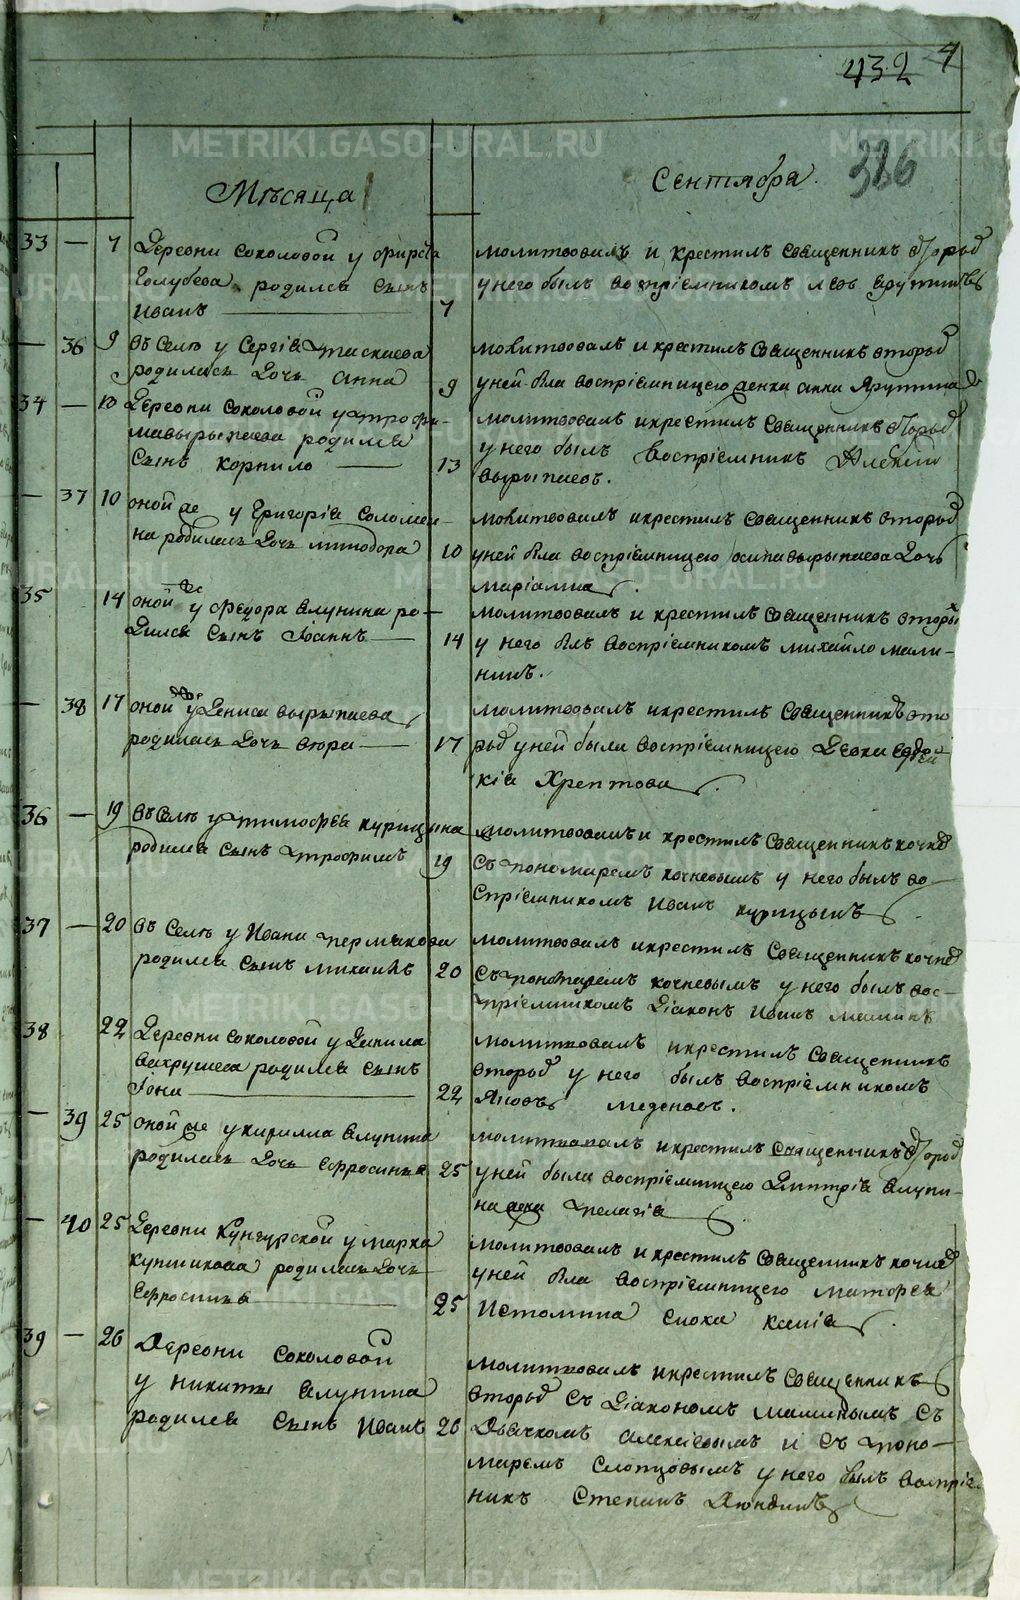 432 4
386
Мѣсяца
Сентября.
33 — 7 Деревни Соколовой у
Голубева родился сынъ
Иванъ 7
молитвовалъ и крестилъ священникъ
у него былъ воспріемникомъ
— 36 9 въ селѣ у Сергія
родилась дочь Анна 9
молитвовалъ и крестилъ священникъ вторый
у ней была воспріемницею Анна
34 — 13 Деревни Соколовой у Трофи-
ма Вырыпаева родился
сынъ Корнило 13
молитвовалъ и крестилъ священникъ вторый
у него былъ воспріемникъ Алексій
Вырыпаевъ.
— 37 10 оной же у Григорія Соломеи-
на родилась дочь Минодора 10
молитвовалъ и крестилъ священникъ вторый
у ней была воспріемницею Осипа Вырыпаева дочь
Маріамна.
35 14 оной же у Ѳедора Ялунина ро-
дился сынъ Іоаннъ 14
молитвовалъ и крестилъ священникъ вторый
у него былъ воспріемникомъ Михайло Мали-
нинъ.
— 38 17 оной же у Дениса Вырыпаева
родилась дочь 17
молитвовалъ и крестилъ священникъ вто
рый у ней была воспріемницею девка Евдо
кія Хрептова.
36 — 19 въ селѣ у Тимофея Курицына
родился сынъ Трофимъ 19
молитвовалъ и крестилъ священникъ Кочнев
съ пономаремъ Кочневымъ у него былъ во
спріемникомъ Иванъ Курицынъ.
37 — 20 въ селѣ у Ивана Пермякова
родился сынъ Михаилъ 20
молитвовалъ и крестилъ священникъ Кочнев
съ пономаремъ Кочневымъ у него былъ вос-
пріемникомъ діаконъ Иванъ
38 22 Деревни Соколовой у Данила
Вахрушева родился сынъ
Іона 22
молитвовалъ и крестилъ священникъ
вторый у него былъ воспріемникомъ
Яковъ Меденовъ.
— 39 25 оной же у Кирилла Ялунина
родилась дочь Ефросинья 25
молитвовалъ и крестилъ священникъ вторый
у ней была воспріемницею Дмитрія Ялуни-
на жена Пелагія
— 40 25 Деревни Кунгурской у Марка
Купчикова родилась дочь
Ефросинья 25
молитвовалъ и крестилъ священникъ Кочнев
у ней была воспріемницею
Истомина сноха
39 — 26 Деревни Соколовой
у Никиты Ялунина
родился сынъ Иванъ 26
молитвовалъ и крестилъ священникъ
вторый съ діакономъ съ
дьячкомъ Алексіевымъ и съ поно-
маремъ Слопцовымъ у него былъ воспріе-
никъ Степанъ
METRIKI.GASO-URAL.RU